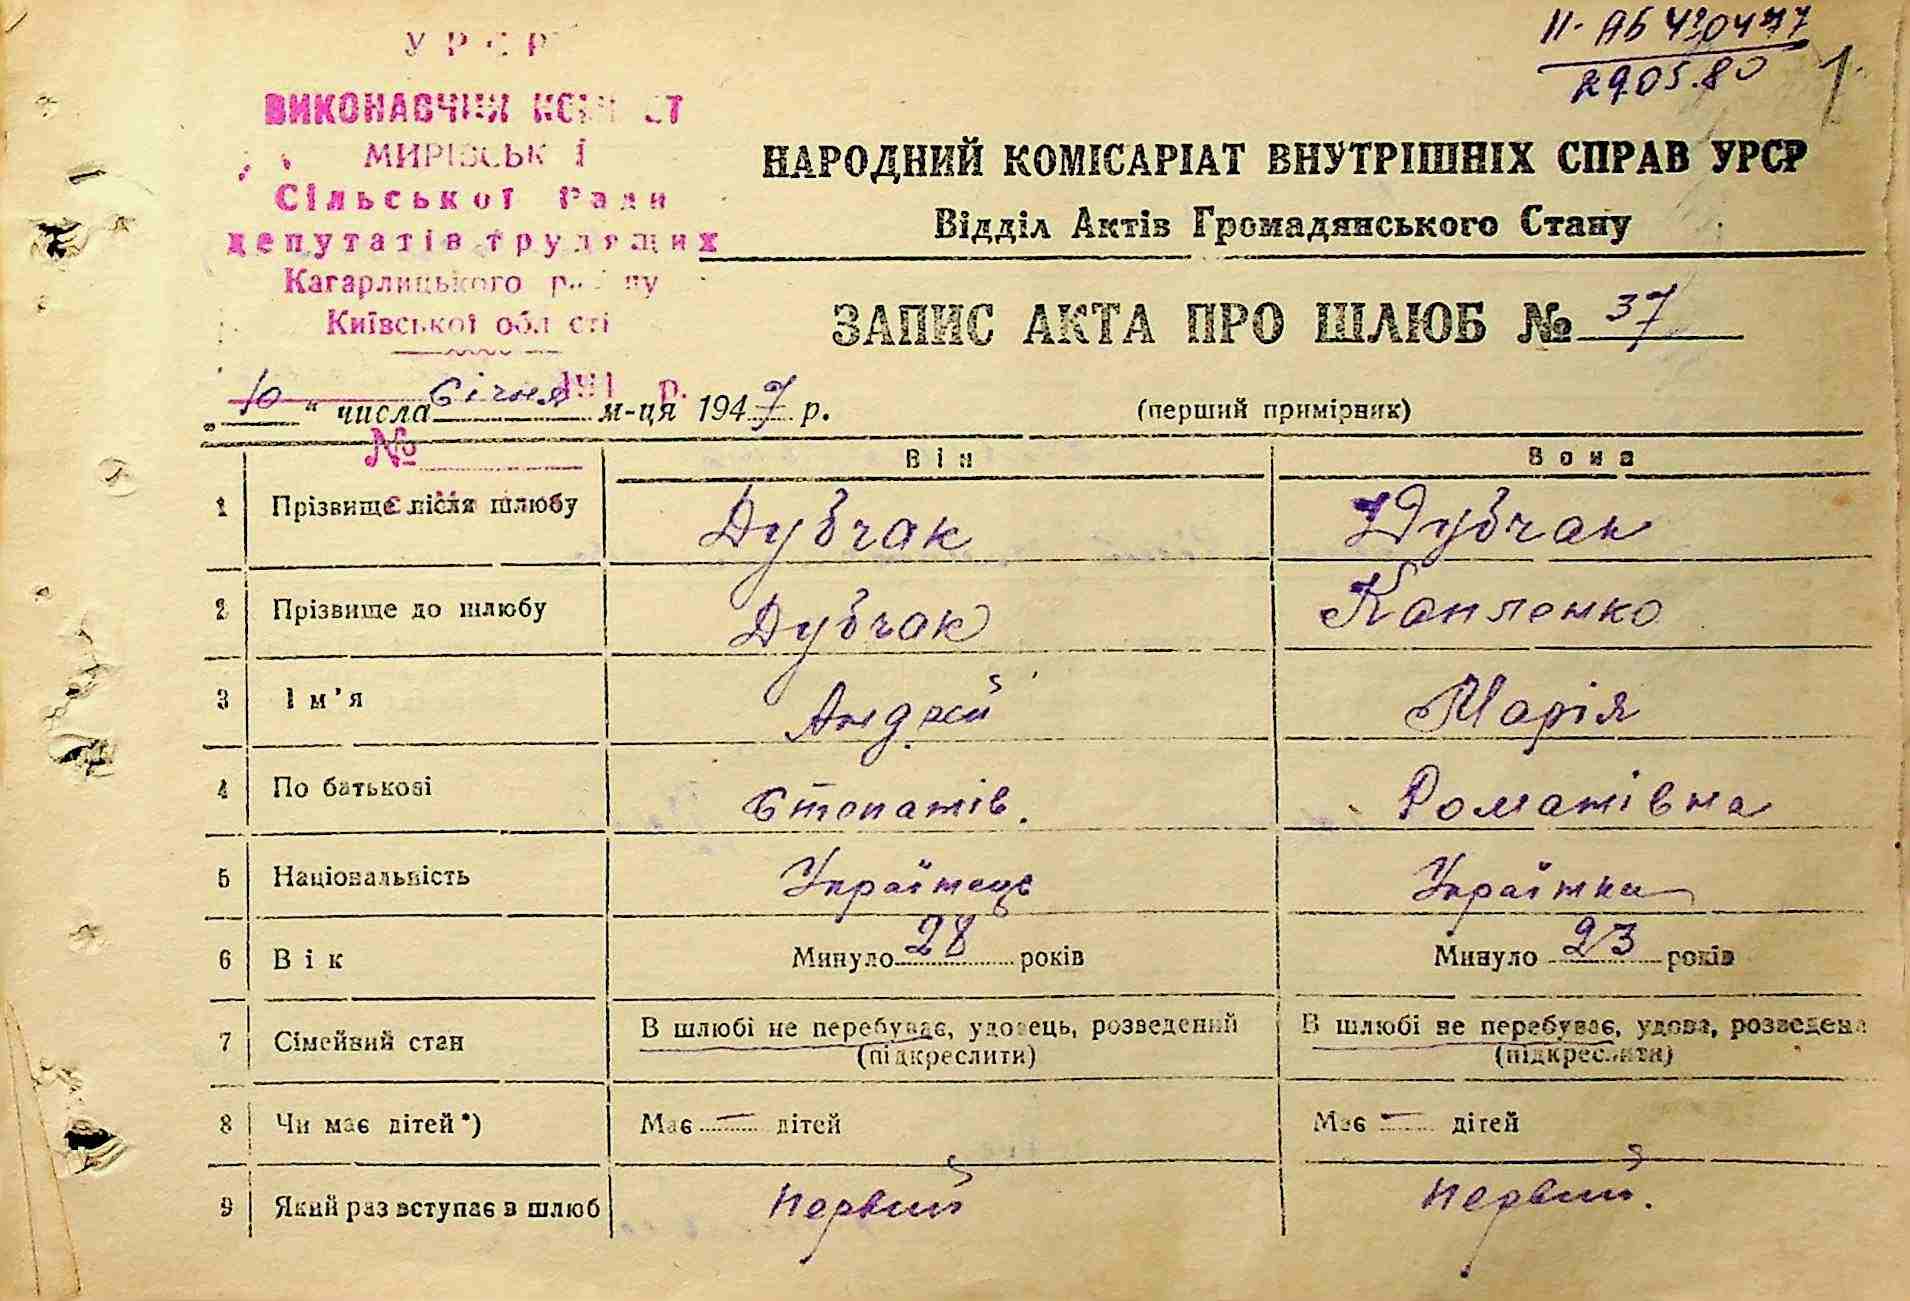 II-АБ 420477
29.05.80
1
УРСР
ВИКОНАВЧИЙ КОМІТЕТ
МИРІВСЬКОЇ
Сільської Ради
депутатів трудящих
Кагарлицького району
Київської області
194 р.
№
НАРОДНИЙ КОМІСАРІАТ ВНУТРІШНІХ СПРАВ УРСР
Відділ Актів Громадянського Стану
ЗАПИС АКТА ПРО ШЛЮБ № 37
„10“ числа Січня м-ця 1947 р.
(перший примірник)
Він Вона
1 Прізвище після шлюбу Дубчак Дубчак
2 Прізвище до шлюбу Дубчак
3 Ім’я Андрій Марія
4 По батькові Романівна
5 Національність Українець Українка
6 Вік Минуло 28 років Минуло 23 років
7 Сімейний стан В шлюбі не перебуває, удовець, розведений В шлюбі не перебуває, удова, розведена
(підкреслити) (підкреслити)
8 Чи має дітей*) Має — дітей Має — дітей
9 Який раз вступає в шлюб Первий Первий.